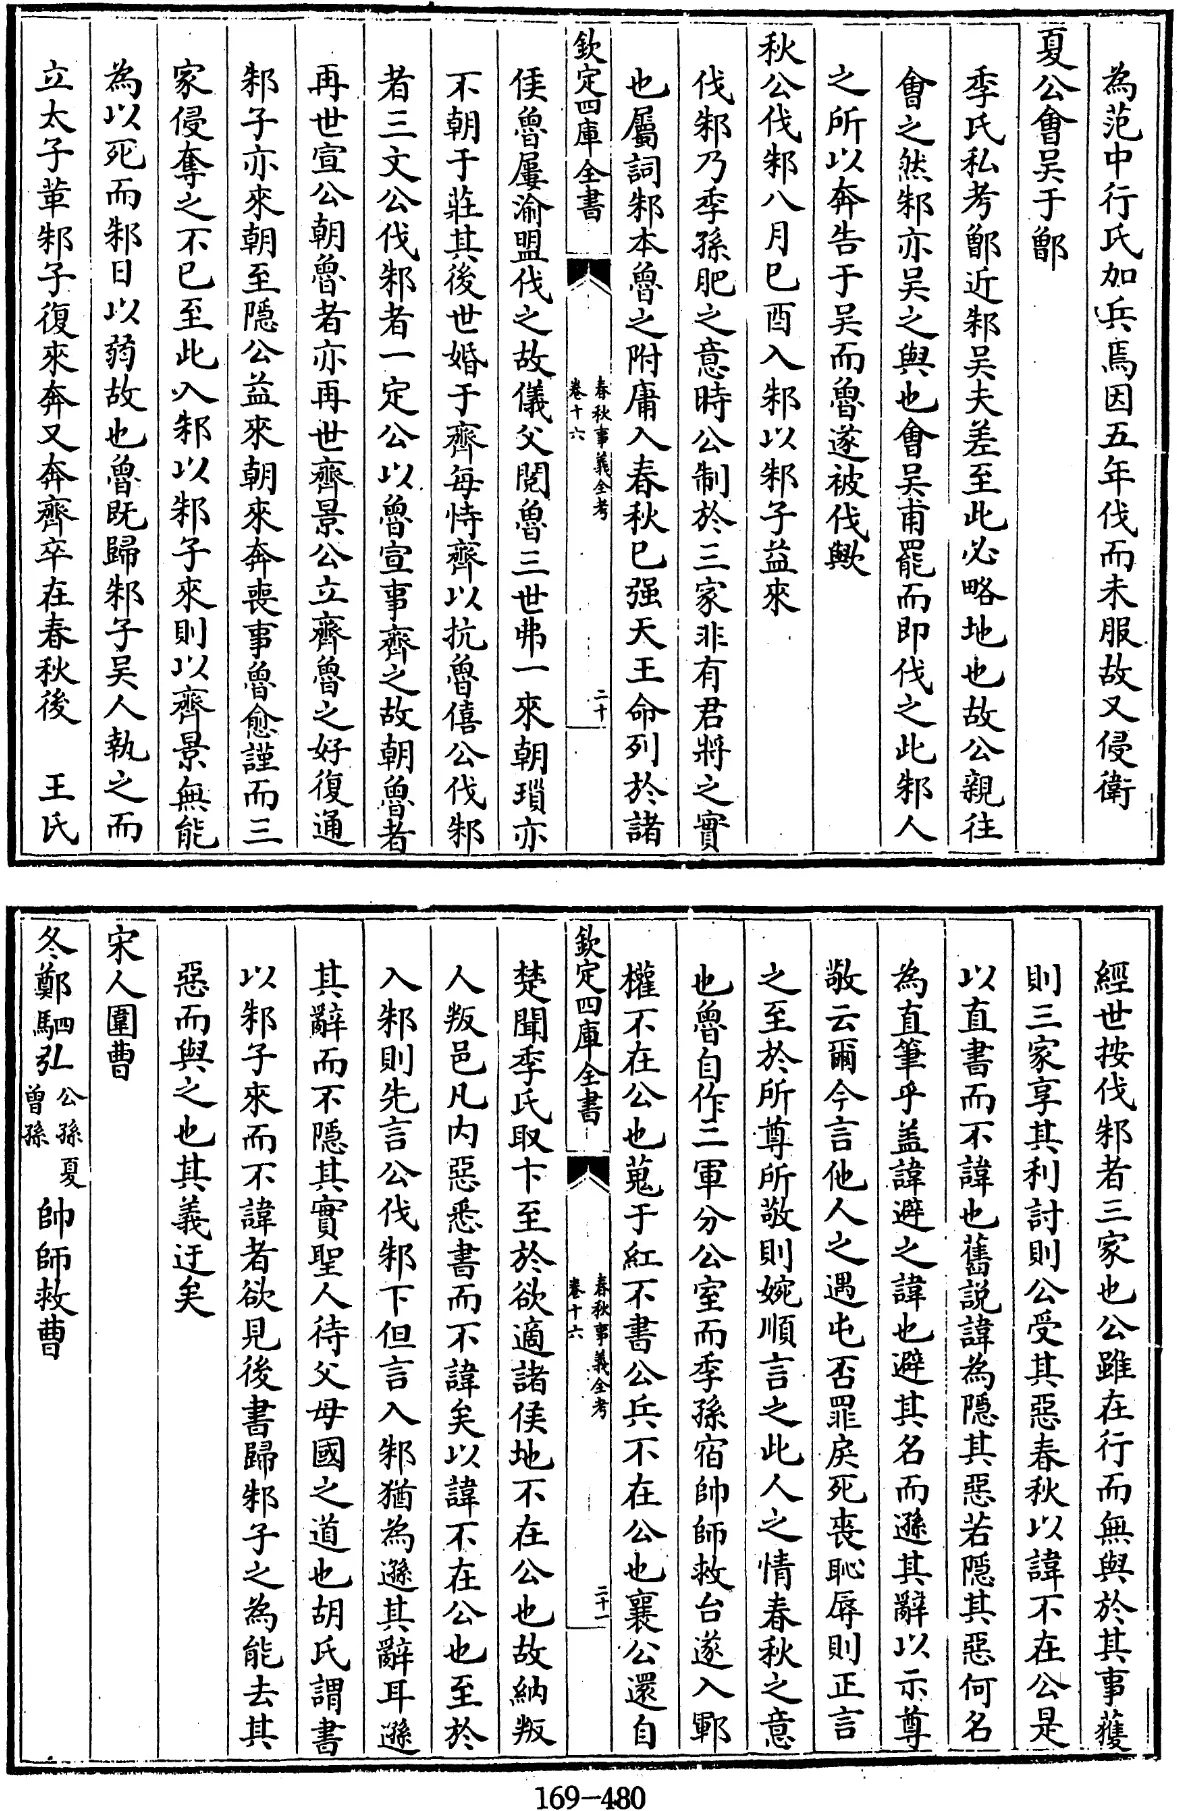 為范中行氏加兵焉因五年伐而未服故又侵衛
夏公會吴于鄫
季氏私考鄫近邾吴夫差至此必略地也故公親往
會之然邾亦吴之與也會吴甫罷而即伐之此邾人
之所以奔告于吴而魯遂被伐歟
秋公伐邾八月已酉入邾以邾子益來
伐邾乃季孫肥之意時公制於三家非有君將之實
也屬詞邾本魯之附庸入春秋已强天王命列於諸
欽定四庫全書
春秋事義全考
卷十六
二十
侯魯屢渝盟伐之故儀父閱魯三世弗一來朝瑣亦
不朝于莊其後世婚于齊每恃齊以抗魯僖公伐邾
者三文公伐邾者一定公以魯宣事齊之故朝魯者
再世宣公朝魯者亦再世齊景公立齊魯之好復通
邾子亦來朝至隱公益來朝來奔喪事魯愈謹而三
家侵奪之不已至此入邾以邾子來則以齊景無能
為以死而邾日以弱故也魯既歸邾子吴人執之而
立太子革邾子復來奔又奔齊卒在春秋後 王氏
經世按伐邾者三家也公雖在行而無與於其事獲
則三家享其利討則公受其惡春秋以諱不在公是
以直書而不諱也舊説諱為隱其惡若隱其惡何名
為直筆乎盖諱避之諱也避其名而遜其辭以示尊
敬云爾今言他人之遇屯否罪戾死喪恥辱則正言
之至於所尊所敬則婉順言之此人之情春秋之意
也魯自作三軍分公室而季孫宿帥師救台遂入鄆
權不在公也蒐于紅不書公兵不在公也襄公還自
欽定四庫全書
春秋事義全考
卷十六
二十一
楚聞季氏取卞至於欲適諸侯地不在公也故納叛
人叛邑凡内惡悉書而不諱矣以諱不在公也至於
入邾則先言公伐邾下但言入邾猶為遜其辭耳遜
其辭而不隱其實聖人待父母國之道也胡氏謂書
以邾子來而不諱者欲見後書歸邾子之為能去其
惡而與之也其義迂矣
宋人圍曹
冬鄭駟弘公孫夏曾孫帥師救曹
169-480